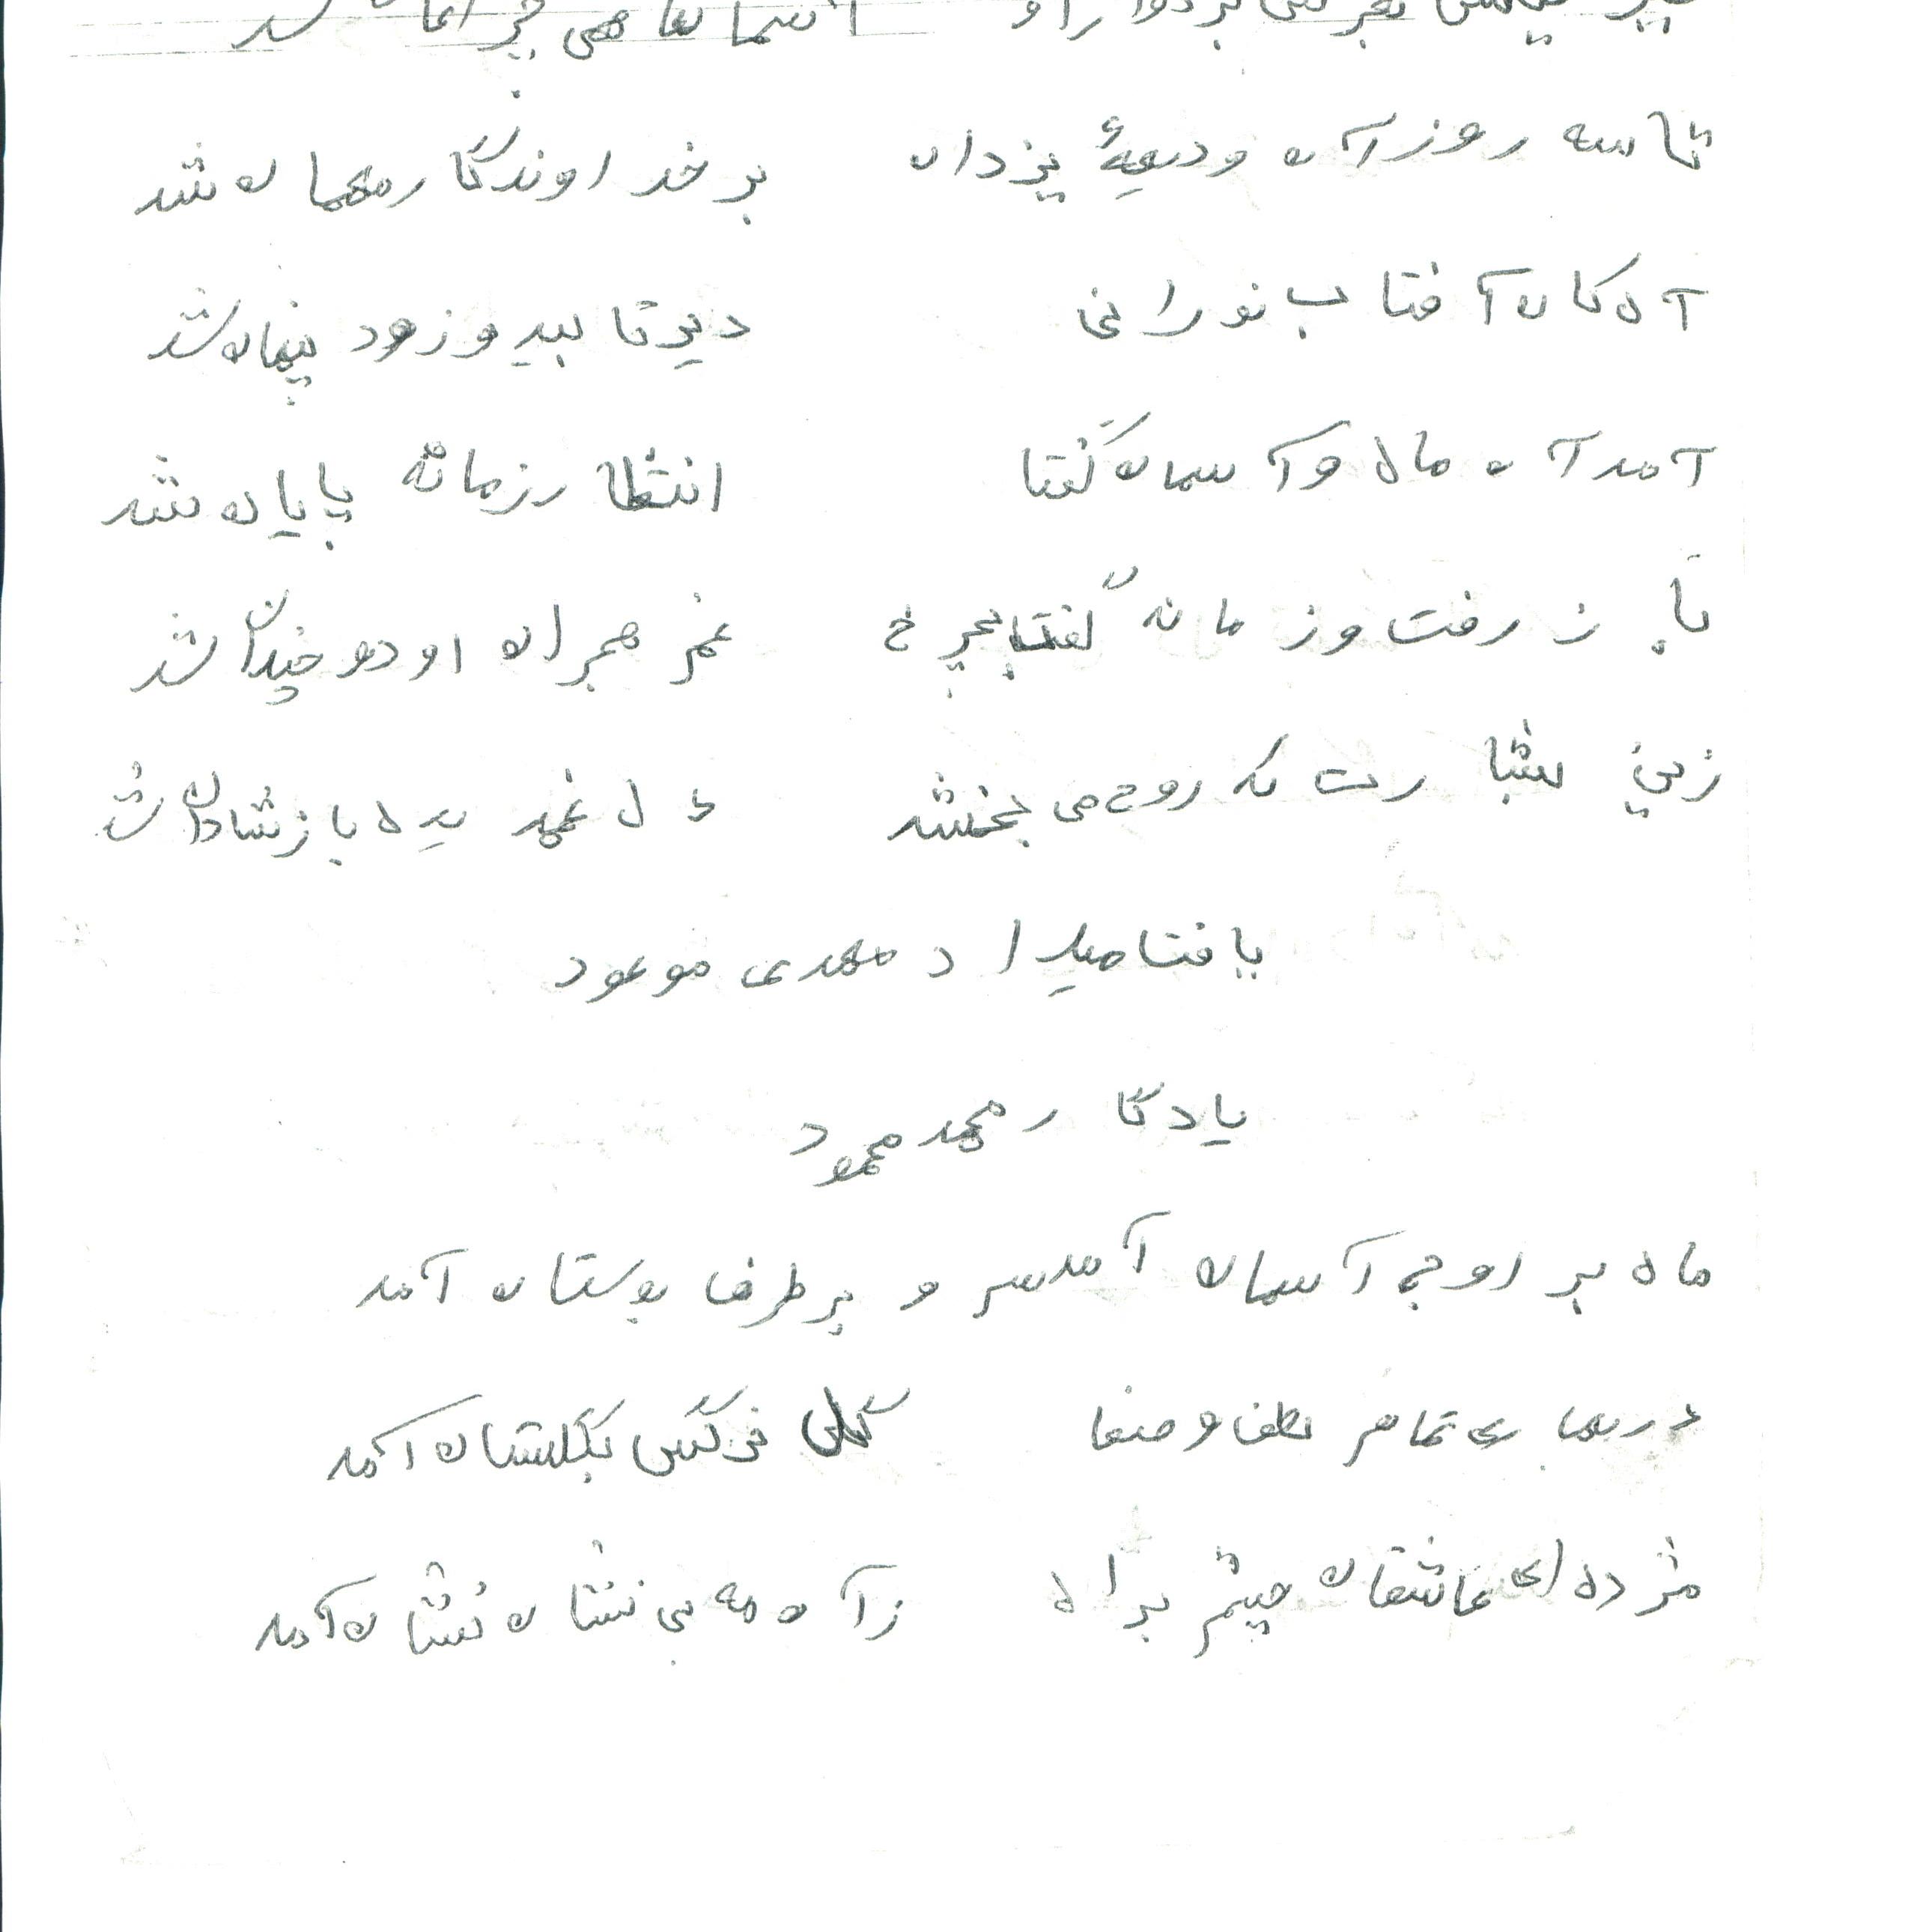 تا سه روز آن ودیعهٔ یزدان بر خداوندگار مهمان شد
آه کان آفتاب نورانی دیر تابید و زود پنهان شد
آمد آن ماه و آسمان گفتا انتظار زمانه پایان شد
باز رفت و زمانه گفتا چرخ غم هجران او دو چندان شد
زین بشارت که روح می بخشد دل غمدیده باز شادان شد
یافت میلاد مهدی موعود
یادگار محمد محمود
ماه بر اوج آسمان آمد سرو بر طرف بوستان آمد
در بهاری تمام لطف و صفا گل نرگس بگلستان آمد
مژده ای عاشقان چشم براه زآن مه بی نشان نشان آمد